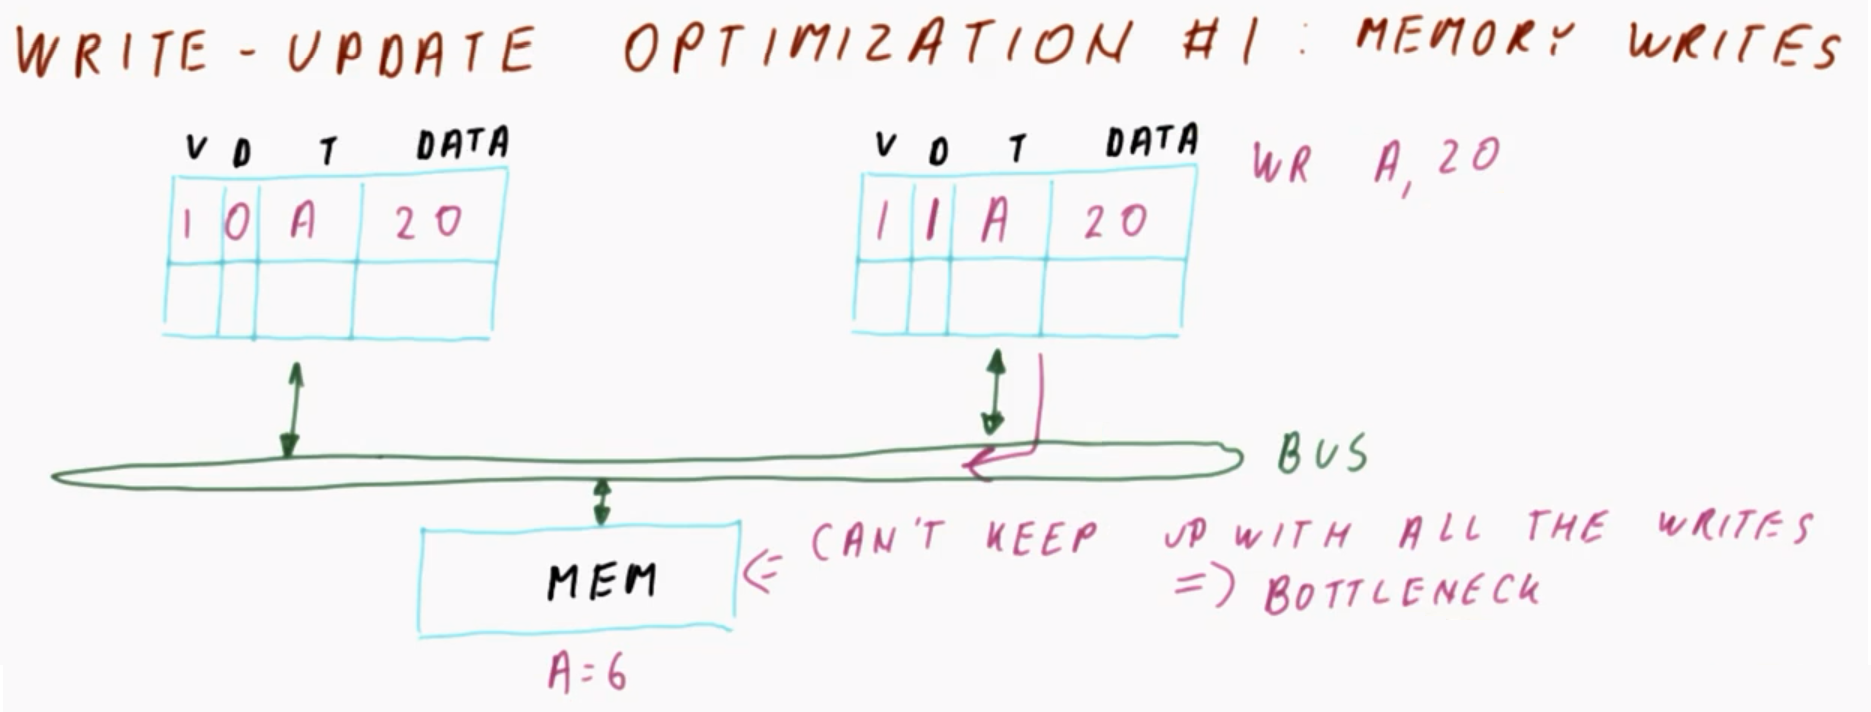 WRITE - UPDATE OPTIMIZATION #1 : MEMORY WRITES
V D T DATA
1 0 A 20
V D T DATA
1 1 A 20
WR A, 20
BUS
MEM
A=6
<= CAN'T KEEP UP WITH ALL THE WRITES
=> BOTTLENECK